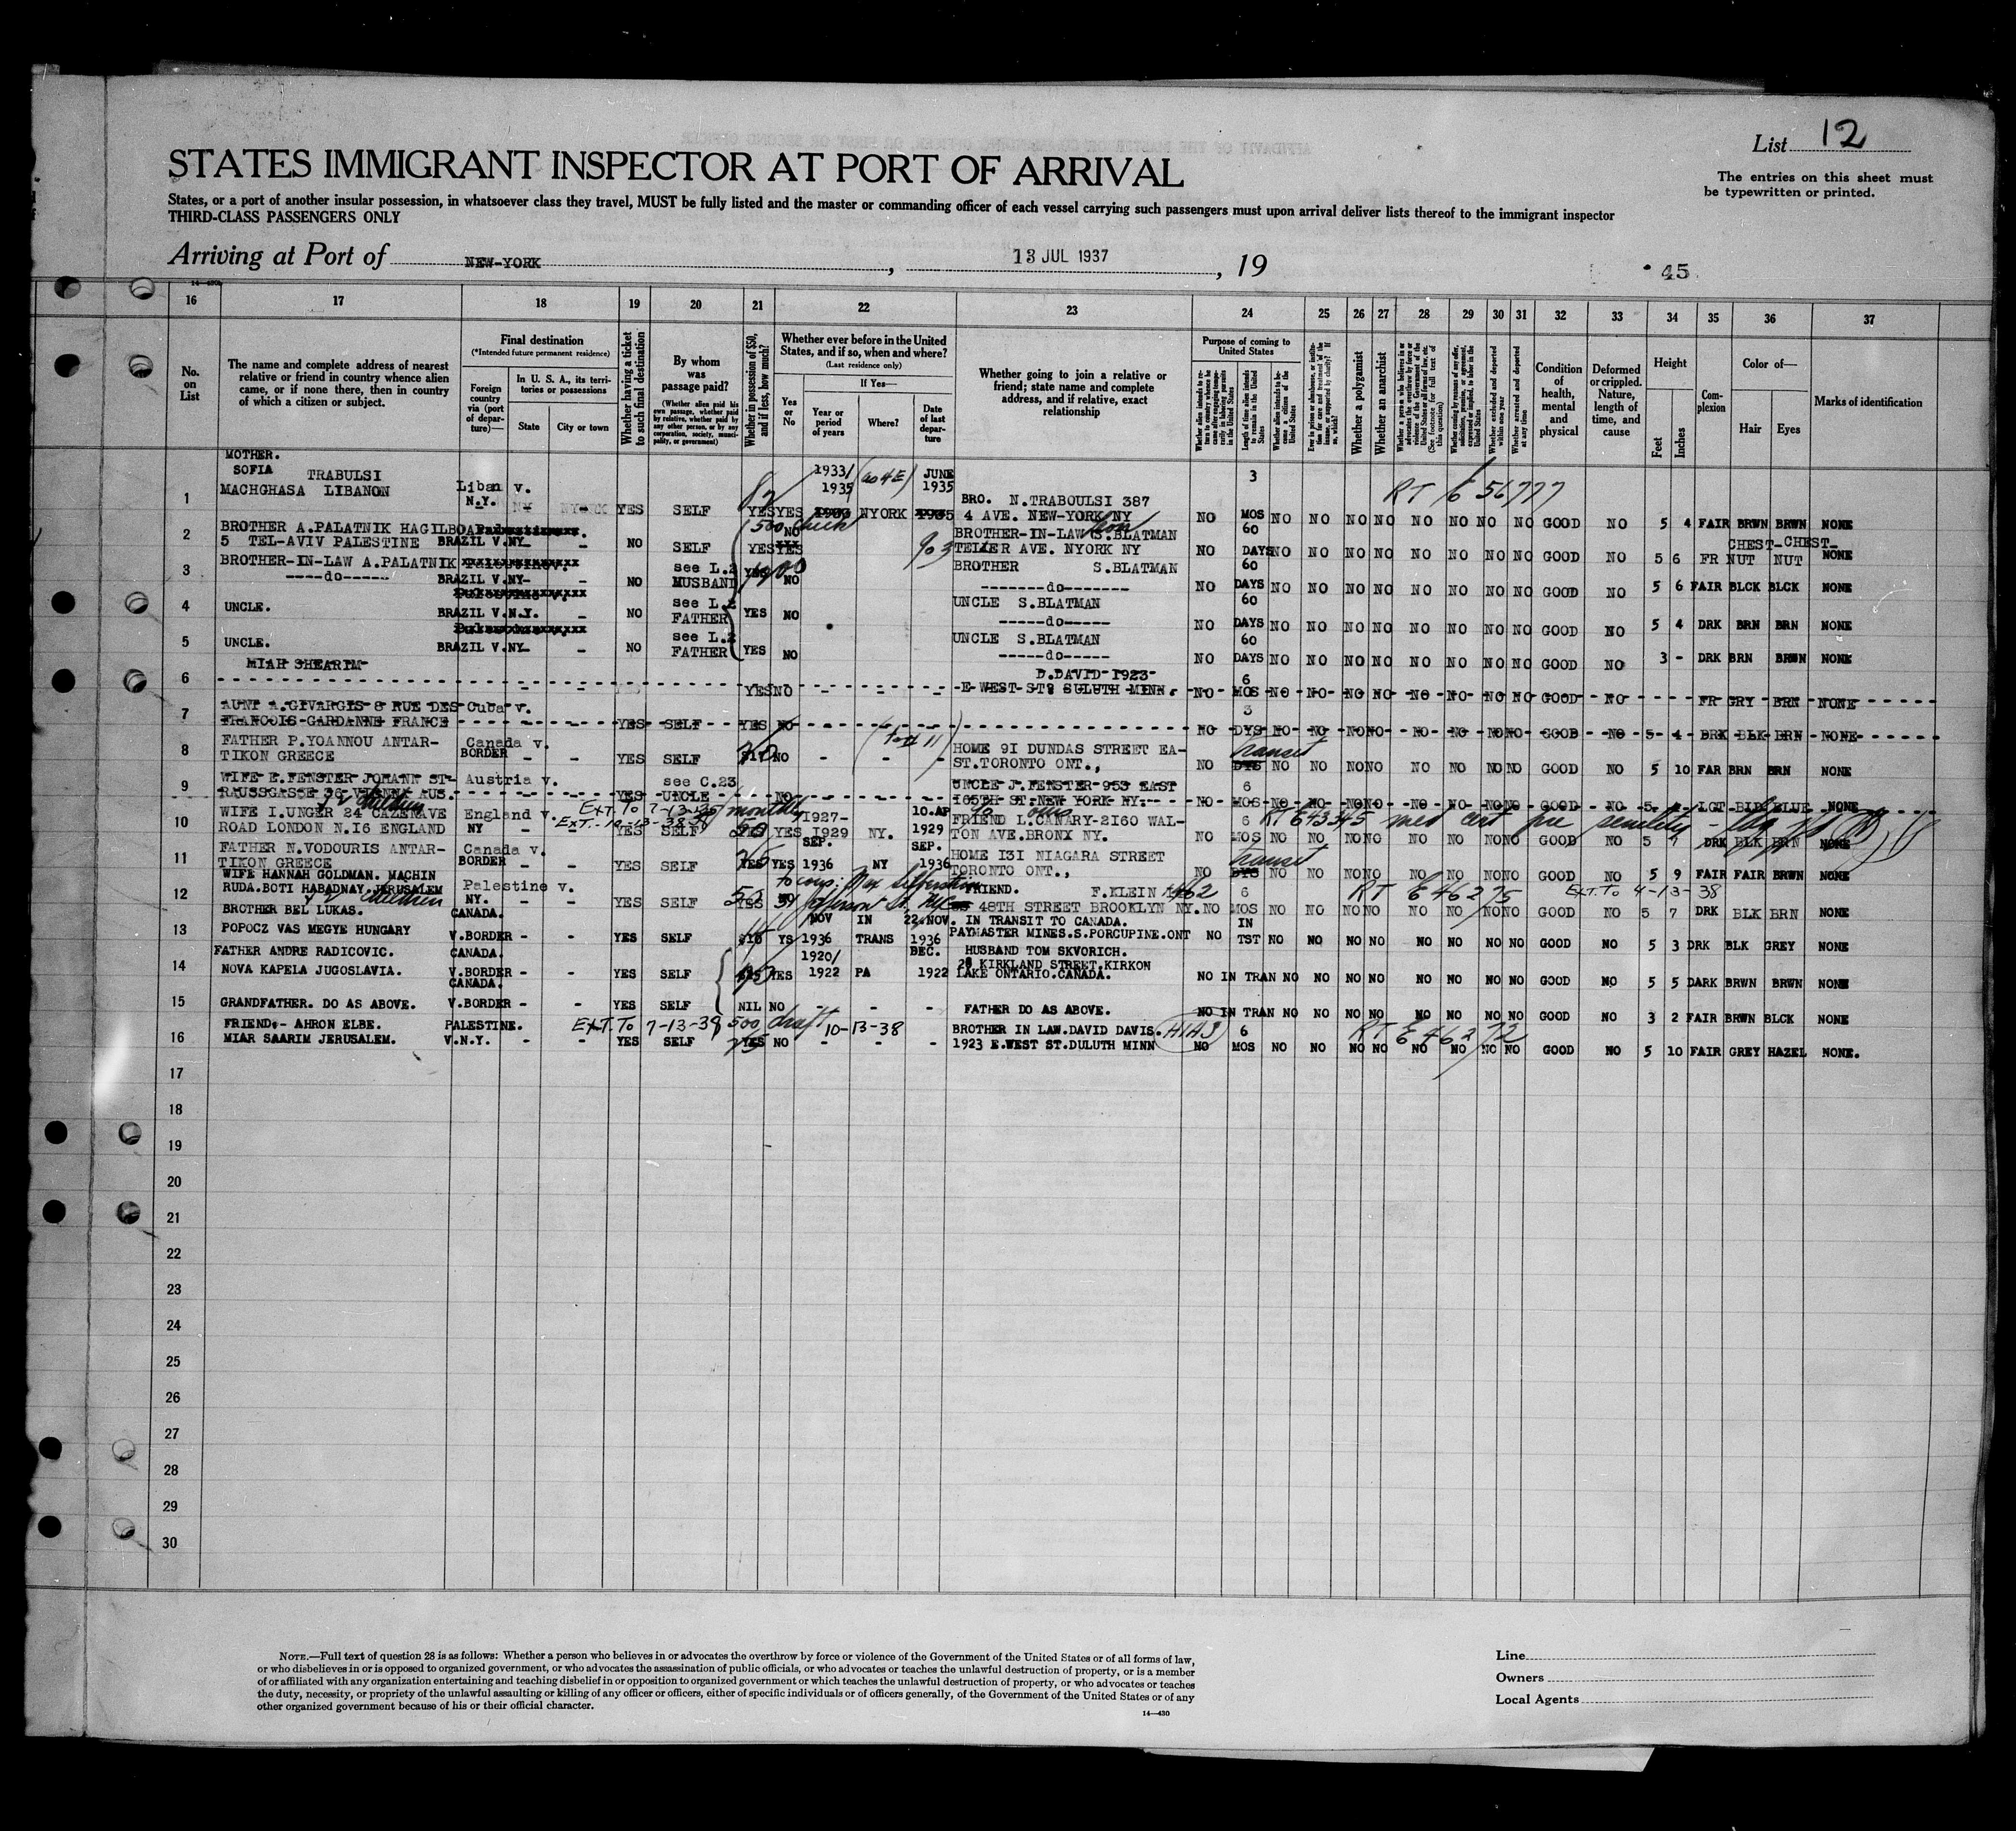 List 12
STATES IMMIGRANT INSPECTOR AT PORT OF ARRIVAL
The entries on this sheet must be typewritten or printed.
States, or a port of another insular possession, in whatsoever class they travel, MUST be fully listed and the master or commanding officer of each vessel carrying such passengers must upon arrival deliver lists thereof to the immigrant inspector
THIRD-CLASS PASSENGERS ONLY
Arriving at Port of NEW-YORK, 13 JUL 1937, 19
45
16 17 18 19 20 21 22 23 24 25 26 27 28 29 30 31 32 33 34 35 36 37
No. on List
The name and complete address of nearest relative or friend in country whence alien came, or if none there, then in country of which a citizen or subject.
Final destination
(*Intended future permanent residence)
Foreign country via (port of departure)—
In U. S. A., its territories or possessions
State
City or town
Whether having a ticket to such final destination
By whom was passage paid?
(Whether alien paid his own passage, whether paid by relative, whether paid by any other person, or by any corporation, society, municipality, or government)
Whether in possession of $50, and if less, how much?
Whether ever before in the United States, and if so, when and where?
(Last residence only)
Yes or No
If Yes—
Year or period of years
Where?
Date of last departure
Whether going to join a relative or friend; state name and complete address, and if relative, exact relationship
Purpose of coming to United States
Length of time alien intends to remain in the United States
Whether alien intends to become a citizen of the United States
Whether a polygamist
Whether an anarchist
Whether excluded and deported within one year
Whether arrested and deported at any time
Condition of health, mental and physical
Deformed or crippled. Nature, length of time, and cause
Height
Feet
Inches
Complexion
Color of—
Hair
Eyes
Marks of identification
MOTHER.
SOFIA TRABULSI 1933/ JUNE 3
1 MACHGHASA LIBANON Liban v. N.Y. NY NYORK YES SELF YES YES 1935 NYORK 1935 BRO. N.TRABOULSI 387
4 AVE. NEW-YORK NY NO MOS NO NO NO NO NO NO NO NO GOOD NO 5 4 FAIR BRWN BRWN NONE
RT E 56777
2 BROTHER A.PALATNIK HAGILBOA
5 TEL-AVIV PALESTINE BRAZIL V.NY - - NO SELF YES NO BROTHER-IN-LAW S.BLATMAN 60
TELLER AVE. NYORK NY NO DAYS NO NO NO NO NO NO NO NO GOOD NO 5 6 FR CHEST-NUT CHEST-NUT NONE
3 BROTHER-IN-LAW A.PALATNIK see L.2 BROTHER S.BLATMAN 60
-----do------ BRAZIL V.NY - - NO HUSBAND YES NO -------do------- NO DAYS NO NO NO NO NO NO NO NO GOOD NO 5 6 FAIR BLCK BLCK NONE
4 UNCLE. BRAZIL V.N.Y. - - NO see L.2 FATHER YES NO UNCLE S.BLATMAN 60
------do----- NO DAYS NO NO NO NO NO NO NO NO GOOD NO 5 4 DRK BRN BRN NONE
5 UNCLE. BRAZIL V.NY - - NO see L.2 FATHER YES NO UNCLE S.BLATMAN 60
-----do----- NO DAYS NO NO NO NO NO NO NO NO GOOD NO 3 - DRK BRN BRWN NONE
6 MIAH SHEARIM YES NO - - - D.DAVID 1923- 6
E WEST ST? SULUTH MINN. NO MOS NO NO NO NO NO NO NO NO GOOD NO FR GRY BRN NONE
7 AUNT A.GIVARGIS 8 RUE DES Cuba v. 3
FRANCOIS GARDANNE FRANCE - - YES SELF YES NO NO DYS NO NO NO NO NO NO NO NO GOOD NO 5 4 DRK BLK BRN NONE
8 FATHER P.YOANNOU ANTAR- Canada v. HOME 91 DUNDAS STREET EA- transit
TIKON GREECE BORDER - - YES SELF NO - - - ST.TORONTO ONT., NO DYS NO NO NO NO NO NO NO NO GOOD NO 5 10 FAR BRN BRN NONE
9 WIFE E.FENSTER JOHANN ST- Austria v. see C.23 UNCLE J.FENSTER 953 EAST 6
RAUSSGASSE 36 VIENNA AUS. - - YES UNCLE NO 165TH ST.NEW YORK NY. NO MOS NO NO NO NO NO NO NO NO GOOD NO NONE
& 2 children
10 WIFE I.UNGER 24 CAZENAVE England v. EXT. TO 7-13-38 monthly 1927- 10.AP FRIEND L.CANARY-2160 WAL- 6 med cert pre senility
ROAD LONDON N.16 ENGLAND NY YES SELF YES YES 1929 NY. 1929 TON AVE.BRONX NY. NO MOS NO NO NO NO NO NO NO NO GOOD NO 5 7 DRK BLK BRN NONE
11 FATHER N.VODOURIS ANTAR- Canada v. SEP. SEP. HOME 131 NIAGARA STREET transit
TIKON GREECE BORDER - - YES SELF YES YES 1936 NY 1936 TORONTO ONT., NO DYS NO NO NO NO NO NO NO NO GOOD NO 5 9 FAIR FAIR BRWN NONE
12 WIFE HANNAH GOLDMAN. MACHIN
RUDA.BOTI HABADNAY.JERUSALEM Palestine v. FRIEND. F.KLEIN 1462 6 RT E 46275 EXT. TO 4-13-38
& 2 children NY. - - YES SELF YES 48TH STREET BROOKLYN NY. NO MOS NO NO NO NO NO NO NO NO GOOD NO 5 7 DRK BLK BRN NONE
13 BROTHER BEL LUKAS. CANADA. NOV IN 22.NOV. IN TRANSIT TO CANADA. IN
POPOCZ VAS MEGYE HUNGARY V.BORDER - - YES SELF YS 1936 TRANS 1936 PAYMASTER MINES.S.PORCUPINE.ONT NO TST NO NO NO NO NO NO NO NO GOOD NO 5 3 DRK BLK GREY NONE
14 FATHER ANDRE RADICOVIC. CANADA. 1920/ DEC. HUSBAND TOM SKVORICH.
NOVA KAPELA JUGOSLAVIA. V.BORDER - - YES SELF YES 1922 PA 1922 28 KIRKLAND STREET.KIRKON
LAKE ONTARIO.CANADA. NO IN TRAN NO NO NO NO NO NO NO NO GOOD NO 5 5 DARK BRWN BRWN NONE
15 GRANDFATHER. DO AS ABOVE. CANADA. V.BORDER - - YES SELF NIL NO - - - FATHER DO AS ABOVE. NO IN TRAN NO NO NO NO NO NO NO NO GOOD NO 3 2 FAIR BRWN BLCK NONE
16 FRIEND.- AHRON ELBE. PALESTINE. EXT. TO 7-13-38 500 draft 10-13-38 BROTHER IN LAW.DAVID DAVIS. 6 RT E 46272
MIAR SAARIM JERUSALEM. V.N.Y. - - YES SELF YES NO - - - 1923 E.WEST ST.DULUTH MINN NO MOS NO NO NO NO NO NO NO NO GOOD NO 5 10 FAIR GREY HAZEL NONE.
17
18
19
20
21
22
23
24
25
26
27
28
29
30
NOTE.—Full text of question 28 is as follows: Whether a person who believes in or advocates the overthrow by force or violence of the Government of the United States or of all forms of law,
or who disbelieves in or is opposed to organized government, or who advocates the assassination of public officials, or who advocates or teaches the unlawful destruction of property, or is a member
of or affiliated with any organization entertaining and teaching disbelief in or opposition to organized government or which teaches the unlawful destruction of property, or who advocates or teaches
the duty, necessity, or propriety of the unlawful assaulting or killing of any officer or officers, either of specific individuals or of officers generally, of the Government of the United States or of any
other organized government because of his or their official character.
14—430
Line
Owners
Local Agents